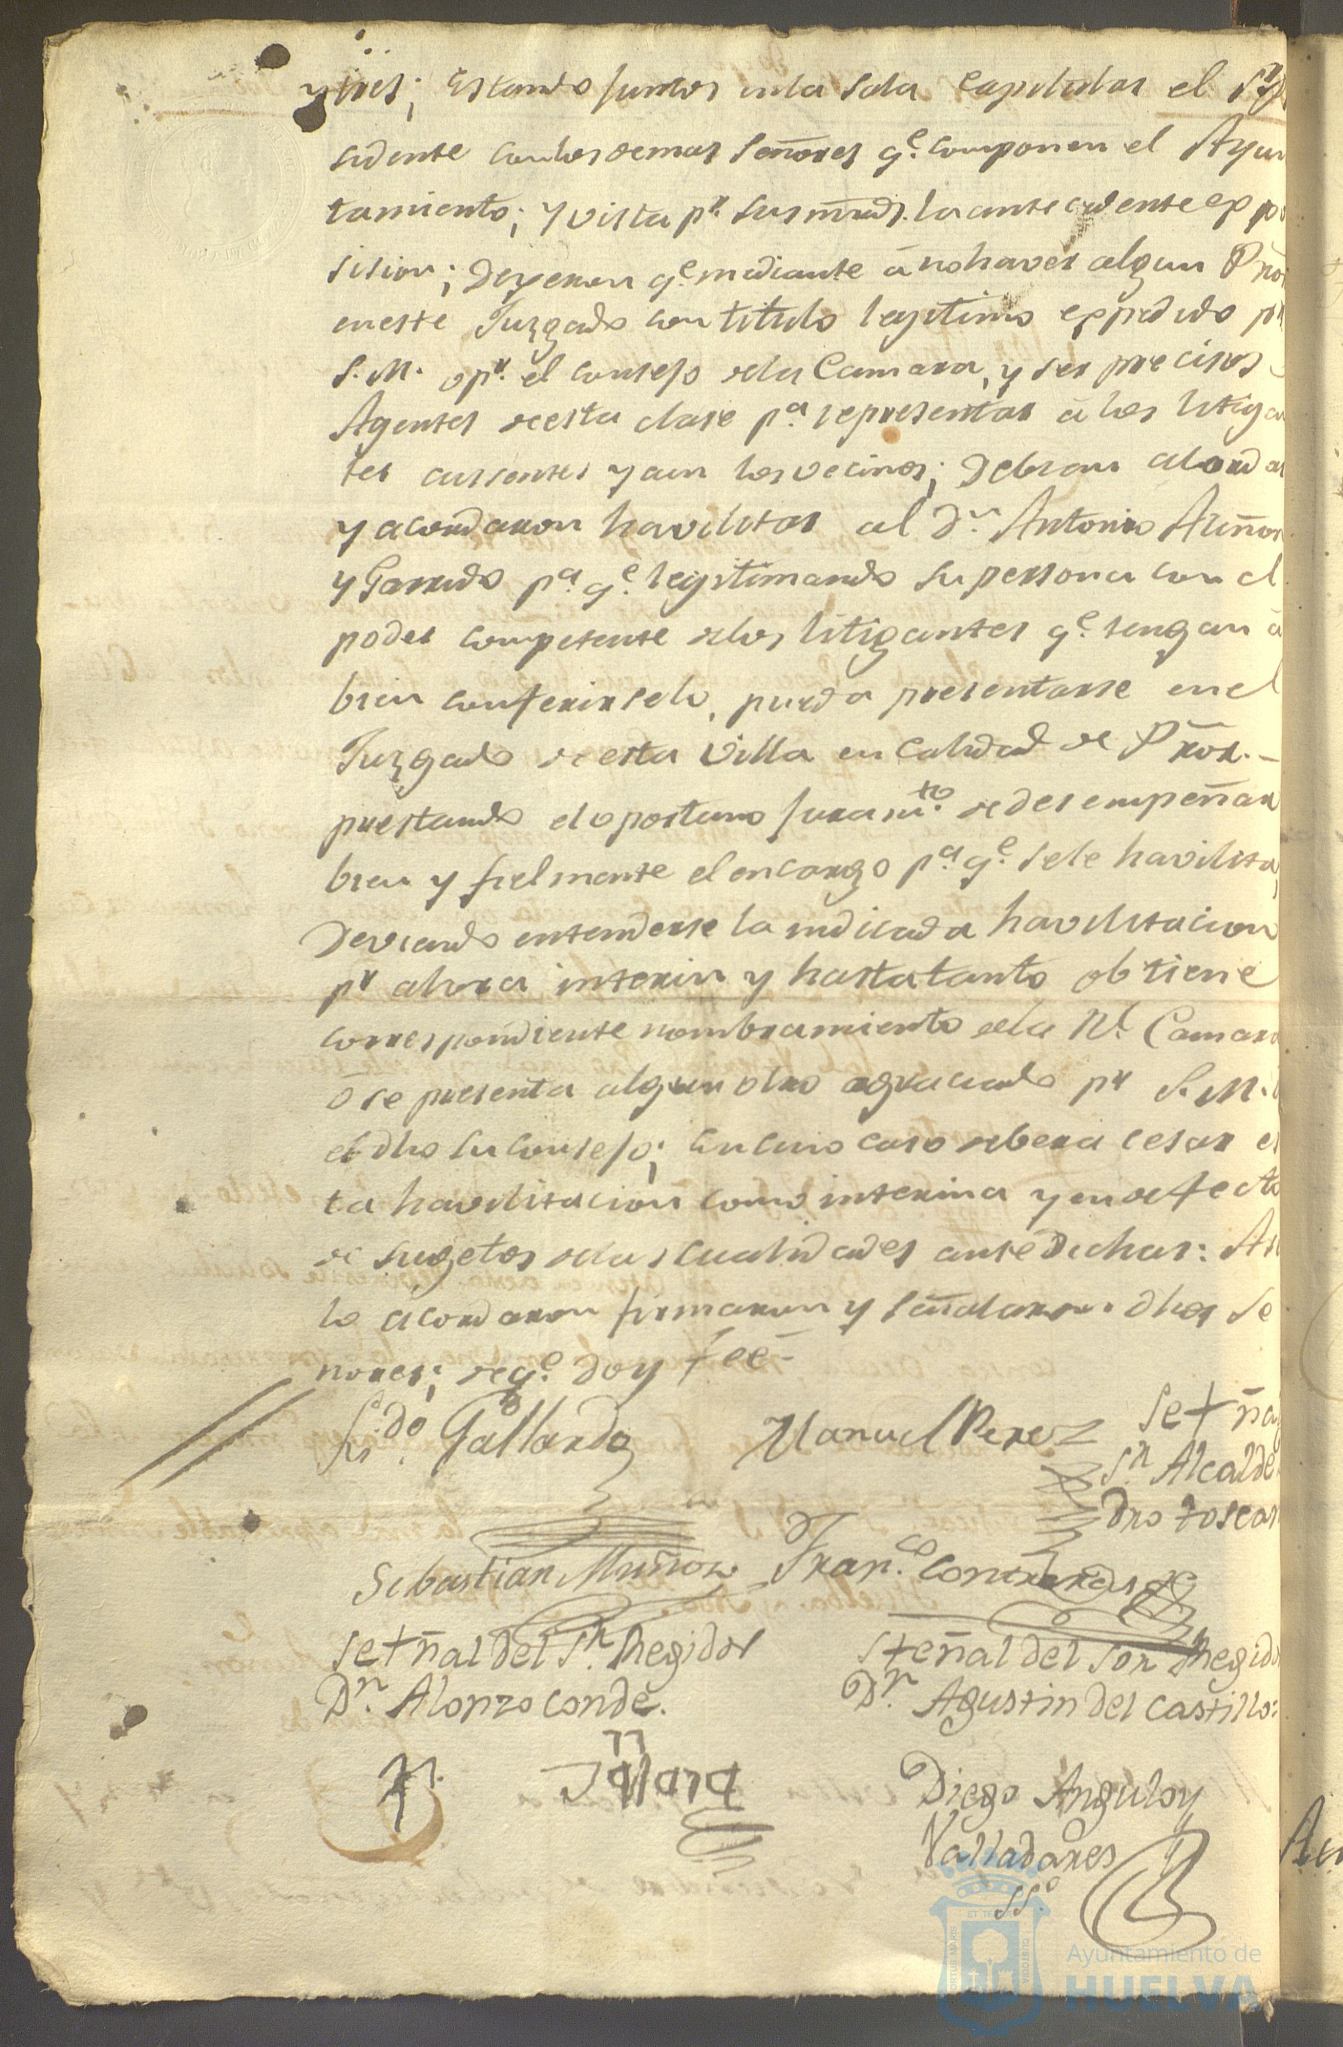 y tres; estando juntos en la sala capitular el Sr Pre
cidente con los demas Señores qe. componen el Ayun
tamiento; y vista pr. sus mrds. la antecedente expo
sision; Dixeron qe. mediante á no haver algun Prōr
en este Juzgado con titulo legitimo expedido pr
S. M. o pr. el consejo de la Camara, y ser precisos
Agentes de esta clase pa. representar á los litigan
tes aussentes y aun los vecinos; Debian acordar
y acordaron havilitar al Dn. Antonio Muñoz
y Garrido pa. qe. legitimando su persona con el
poder competente de los litigantes qe. tengan á
bien conferirselo, pueda presentarse en el
Juzgado de esta Villa en calidad de Prōr.
prestando el oportuno juramto. de desempeñar
bien y fielmente el encargo pa. qe. se le havilita;
Deviendo entenderse la indicada havilitacion
pr ahora interin y hasta tanto obtiene
correspondiente nombramiento de la Rl. Camara
ó se presenta algun otro agraciado pr S. M.
el dho su consejo; en cuio caso debera cesar es
ta havilitacion como interina y en defecto
de sugetos de las cualidades ante dichas: Asi
lo acordaron firmaron y señalaron dhos Se
ñores; de qe. doy feé
Lizdo. Gallardo Manuel Perez Se+ñal
Sr. Alcalde
dro Toscan
Sebastian Muñoz Franco. Contreras
Se+ñal del Sr. Regidor S+eñal del Sor Regidor
Dn. Alonzo Conde. Dn. Agustin del Castillo:
Diego Angulo y
Valladares
SSo.
Ayuntamiento de
HUELVA